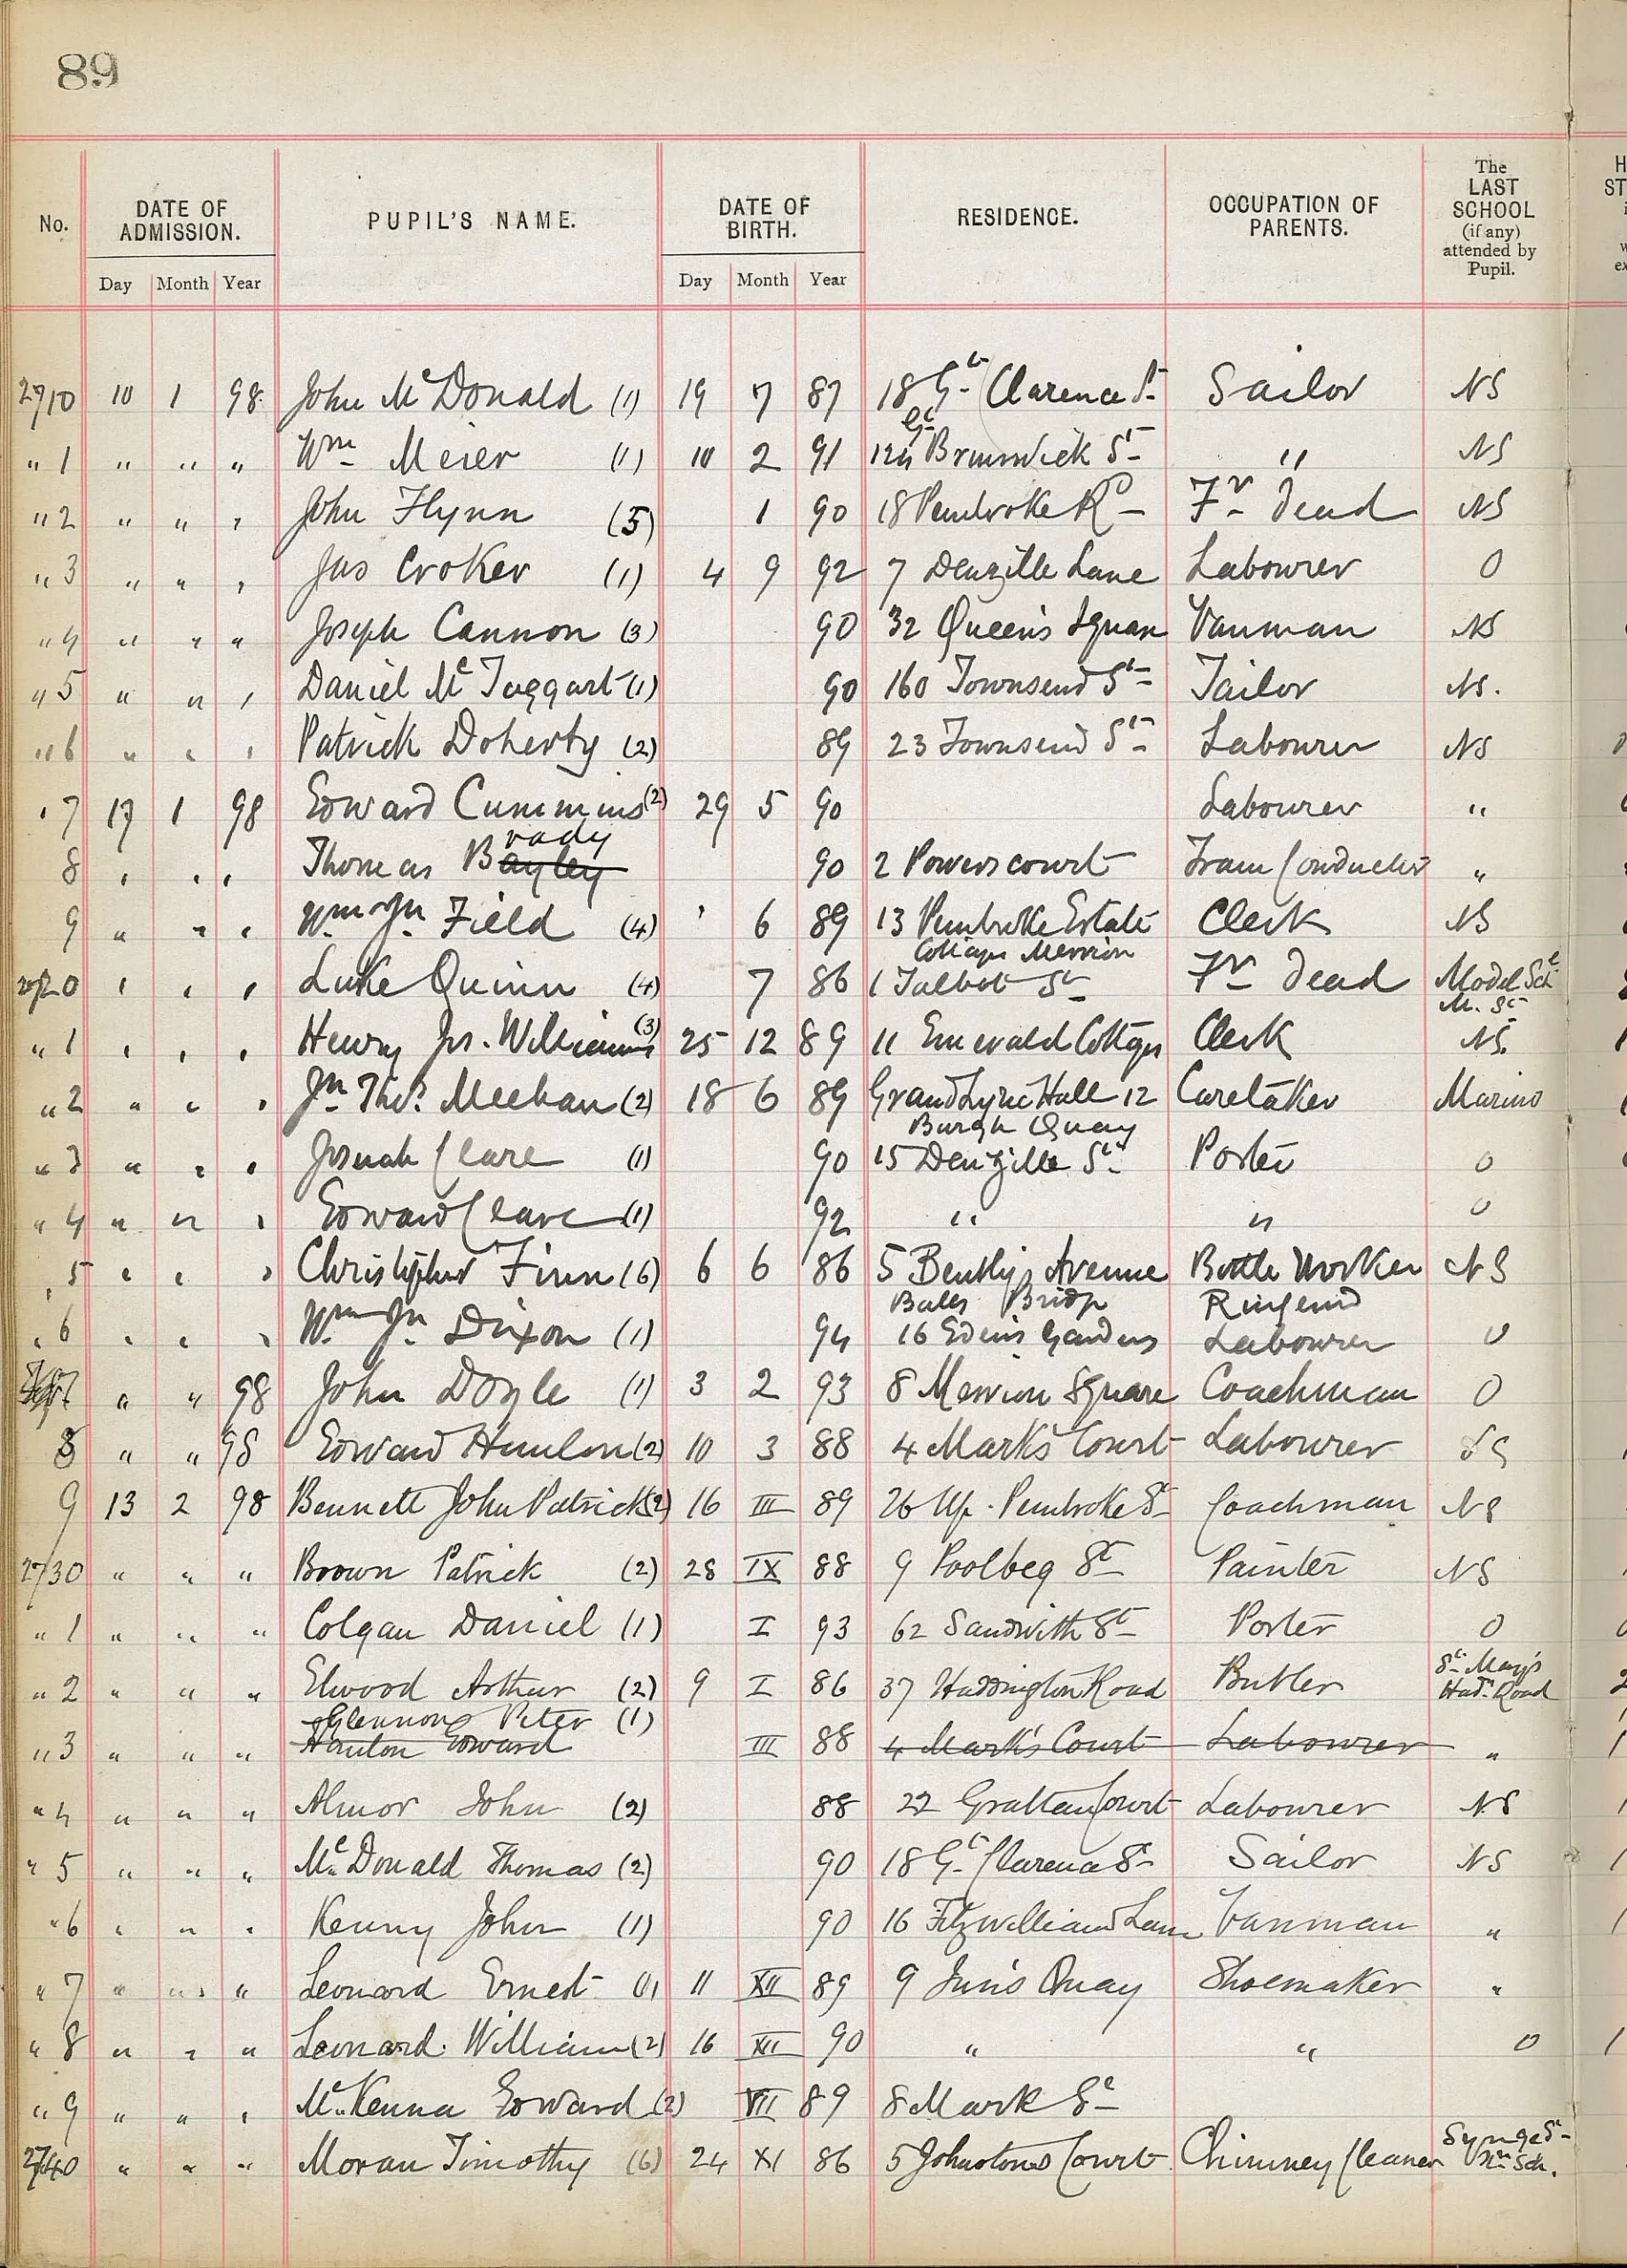 89
No. DATE OF ADMISSION. PUPIL'S NAME. DATE OF BIRTH. RESIDENCE. OCCUPATION OF PARENTS. The LAST SCHOOL (if any) attended by Pupil.
Day Month Year Day Month Year
2710 10 1 98 John McDonald (1) 19 7 87 18 Gt Clarence St Sailor NS
" 1 " " " Wm Meier (1) 10 2 91 124 Gt Brunswick St " NS
" 2 " " " John Flynn (5) 1 90 18 Pembroke Rd Fr dead NS
" 3 " " " Jas Croker (1) 4 9 92 7 Denzille Lane Labourer 0
" 4 " " " Joseph Cannon (3) 90 32 Queen's Square Vanman NS
" 5 " " " Daniel McTaggart (1) 90 160 Townsend St Tailor NS.
" 6 " " " Patrick Doherty (2) 89 23 Townsend St Labourer NS
" 7 17 1 98 Edward Cummins (2) 29 5 90 Labourer "
8 " " " Thomas Bayley rady 90 2 Powerscourt Tram Conductor "
9 " " " Wm Jn Field (4) 6 89 13 Pembroke Estate Clerk NS
Cottages Merrion
2720 " " " Luke Quinn (4) 7 86 1 Talbot St Fr dead Model Sch
M. St
" 1 " " " Henry Jos. Williams (3) 25 12 89 11 Emerald Cottages Clerk NS.
" 2 " " " Jn Thos Meehan (2) 18 6 89 Grand Lyric Hall 12 Caretaker Marino
Burgh Quay
" 3 " " " Josiah Cleare (1) 90 15 Denzille St Porter 0
" 4 " " " Edward Cleare (1) 92 " " 0
5 " " " Christopher Finn (6) 6 6 86 5 Bently's Avenue Bottle Worker NS
Balls Bridge Ringsend
" 6 " " " Wm Jn Dixon (1) 94 16 Eden's Gardens Labourer 0
7 " " 98 John Doyle (1) 3 2 93 8 Merrion Square Coachman 0
8 " " 98 Edward Hanlon (2) 10 3 88 4 Mark's Court Labourer NS
9 13 2 98 Bennett John Patrick (2) 16 III 89 26 Up. Pembroke St Coachman NS
2730 " " " Brown Patrick (2) 28 IX 88 9 Poolbeg St Painter NS
" 1 " " " Colgan Daniel (1) I 93 62 Sandwith St Porter 0
" 2 " " " Elwood Arthur (2) 9 I 86 37 Haddington Road Butler St Mary's Had. Road
Glennon Peter (1)
" 3 " " " Hanlon Edward III 88 4 Mark's Court Labourer "
" 4 " " " Almor John (2) 88 22 Grattan Court Labourer NS
" 5 " " " McDonald Thomas (2) 90 18 Gt Clarence St Sailor NS
" 6 " " " Kenny John (1) 90 16 Fitzwilliam Lane Vanman "
" 7 " " " Leonard Ernest (1) 11 XII 89 9 Quay Shoemaker "
" 8 " " " Leonard William (2) 16 XII 90 " " 0
" 9 " " " McKenna Edward (2) VII 89 8 Mark St
2740 " " " Moran Timothy (6) 24 XI 86 5 Johnston's Court Chimney Cleaner Synge St Sch.